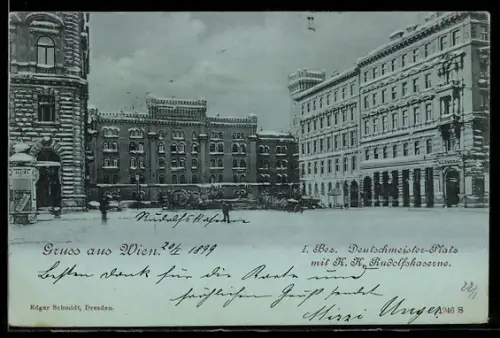 Rudolfskaserne
Gruss aus Wien. 20/I 1899
I. Bez. Deutschmeister-Platz
mit K. K. Rudolfskaserne.
Besten Dank für die Karte und
fröhlichen Gruß sendet
Mizzi Unger
Edgar Schmidt, Dresden.
1946 S